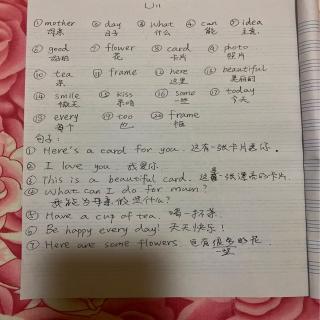 U11
① mother ② day ③ what ④ can ⑤ idea
母亲 日子 什么 能 主意
⑥ good ⑦ flower ⑧ card ⑨ photo
好的 花 卡片 照片
⑩ tea ⑪ frame ⑫ here ⑬ beautiful
茶 这里 美丽的
⑭ smile ⑮ kiss ⑯ some ⑰ today
微笑 亲吻 一些 今天
⑱ every ⑲ too ⑳ frame
每个 也 框
句子:
① Here's a card for you. 这有一张卡片送你.
② I love you 我爱你.
③ This is a beautiful card. 这是一张漂亮的卡片.
④ What can I do for mum?
我能为母亲做些什么?
⑤ Have a cup of tea. 喝一杯茶.
⑥ Be happy every day! 天天快乐!
⑦ Here are some flowers. 有很多的花.
一些